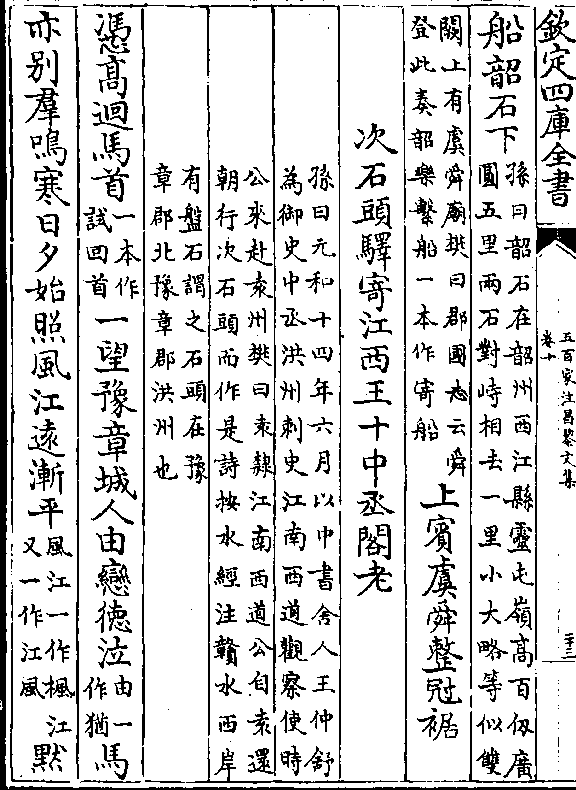 欽定四庫全書
五百家注昌黎文集
卷十
二十三
船韶石下
孫曰韶石在韶州西江縣靈屯嶺高百仭廣
圓五里兩石對峙相去一里小大略等似雙
闕上有虞舜廟樊曰郡國志云舜
登此奏韶樂繫船一本作寄船
上賓虞舜整冠裾
次石頭驛寄江西王十中丞閣老
孫曰元和十四年六月以中書舍人王仲舒
為御史中丞洪州刺史江南西道觀察使時
公來赴袁州樊曰袁隸江南西道公自袁還
朝行次石頭而作是詩按水經注贛水西岸
有盤石謂之石頭在豫
章郡北豫章郡洪州也
憑髙迴馬首
一本作
試回首
一望豫章城人由戀德泣
由一
作猶
馬
亦别羣鳴寒日夕始照風江遠漸平
風江一作楓江
又一作江風
黙